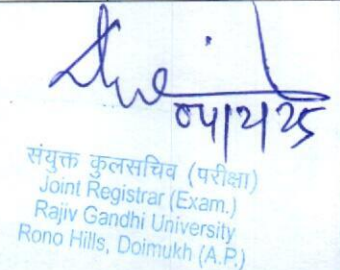 संयुक्त कुलसचिव (परीक्षा)
Joint Registrar (Exam.)
Rajiv Gandhi University
Rono Hills, Doimukh (A.P.)